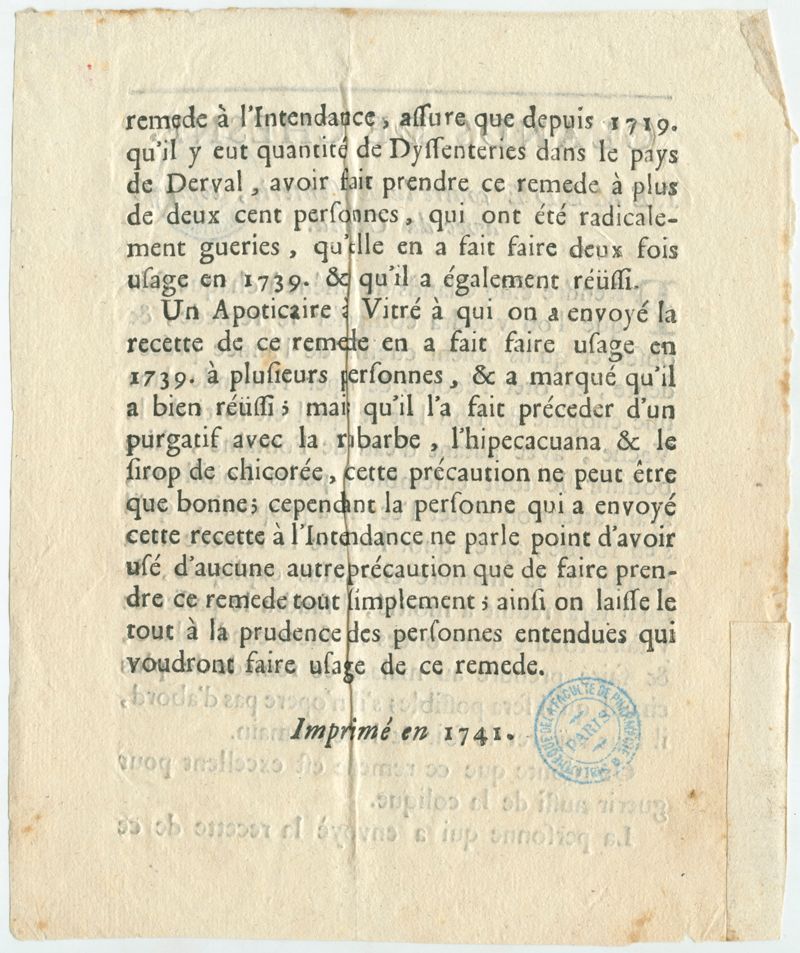 remede à l'Intendance, aſſure que depuis 1719.
qu'il y eut quantité de Dyſſenteries dans le pays
de Derval, avoir fait prendre ce remede à plus
de deux cent perſonnes, qui ont été radicale-
ment gueries, qu'elle en a fait faire deux fois
uſage en 1739. & qu'il a également réüſſi.
Un Apoticaire à Vitré à qui on a envoyé la
recette de ce remede en a fait faire uſage en
1739. à pluſieurs perſonnes, & a marqué qu'il
a bien réüſſi; mais qu'il l'a fait préceder d'un
purgatif avec la rubarbe, l'hipecacuana & le
ſirop de chicorée, cette précaution ne peut être
que bonne; cependant la perſonne qui a envoyé
cette recette à l'Intendance ne parle point d'avoir
uſé d'aucune autre précaution que de faire pren-
dre ce remede tout ſimplement; ainſi on laiſſe le
tout à la prudence des perſonnes entenduës qui
voudront faire uſage de ce remede.
Imprimé en 1741.
BIBLIOTHEQUE DE LA FACULTE DE PHARMACIE
PARIS